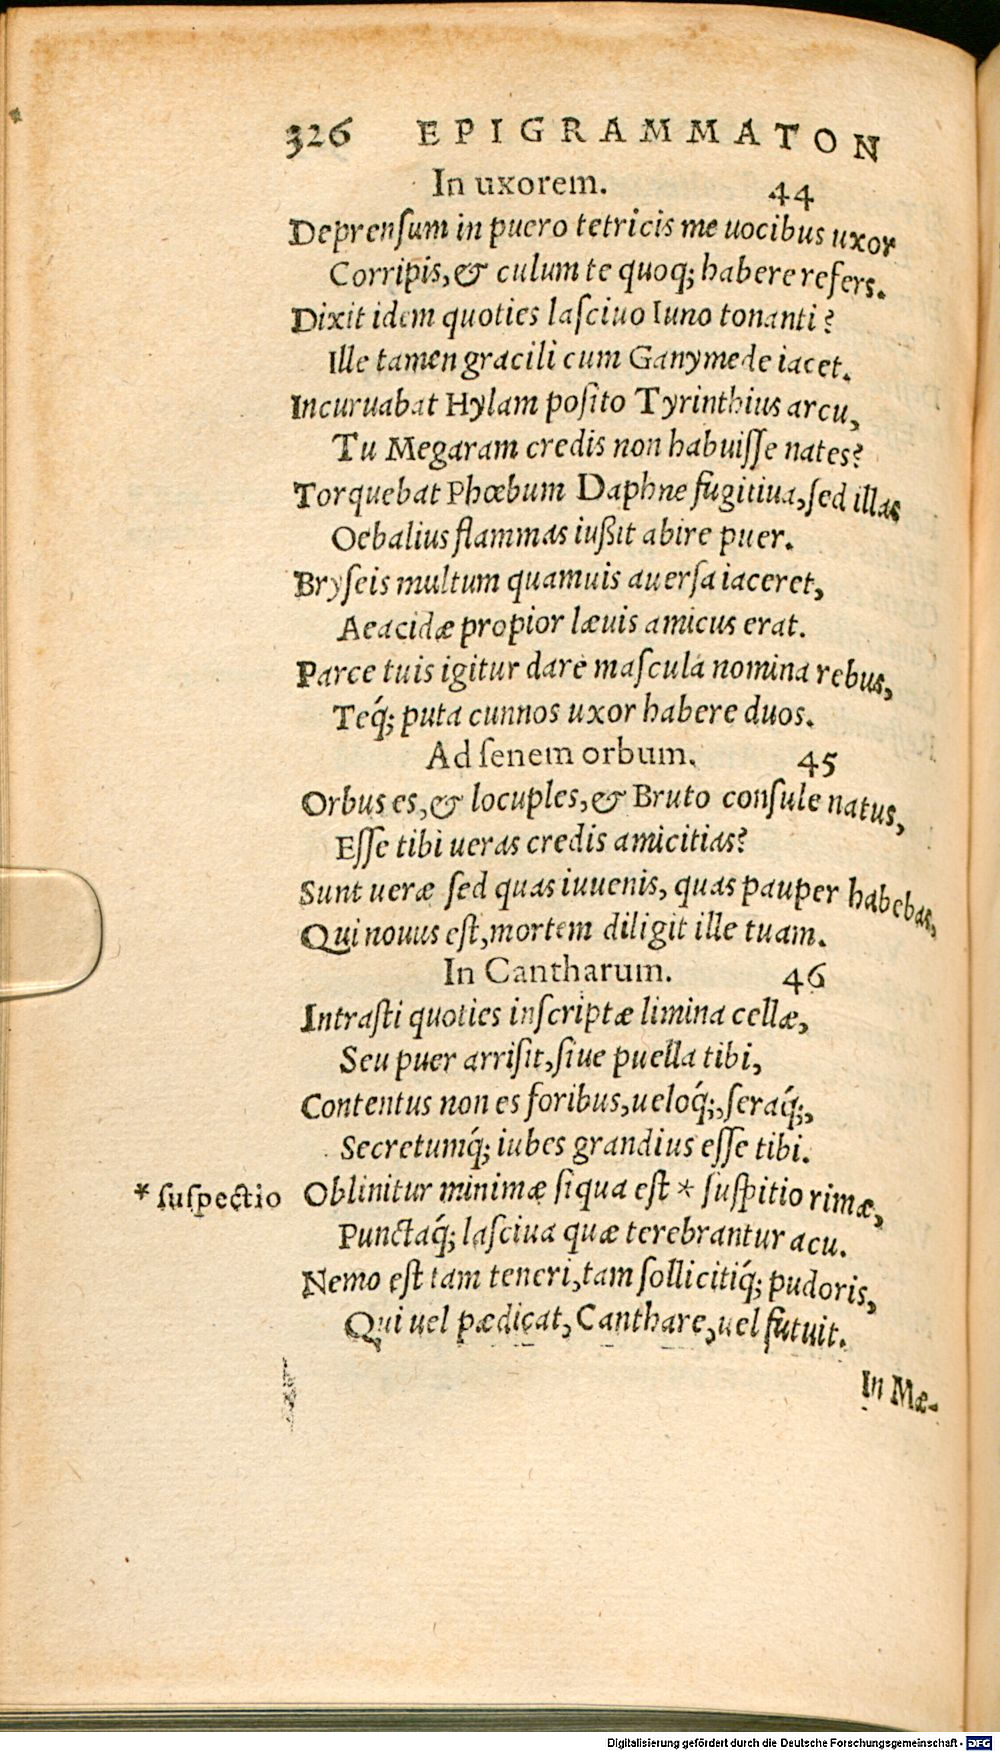 326 EPIGRAMMATON
In uxorem. 44
Deprenſum in puero tetricis me uocibus uxor
Corripis, & culum te quoq; habere refers.
Dixit idem quoties laſciuo Iuno tonanti?
Ille tamen gracili cum Ganymede iacet.
Incuruabat Hylam poſito Tyrinthius arcu,
Tu Megaram credis non habuiſſe nates?
Torquebat Phœbum Daphne fugitiua, ſed illas
Oebalius flammas iußit abire puer.
Bryſeis multum quamuis auerſa iaceret,
Aeacidæ propior læuis amicus erat.
Parce tuis igitur dare maſcula nomina rebus,
Teq́; puta cunnos uxor habere duos.
Ad ſenem orbum. 45
Orbus es, & locuples, & Bruto conſule natus,
Eſſe tibi ueras credis amicitias?
Sunt ueræ ſed quas iuuenis, quas pauper habebas,
Qui nouus eſt, mortem diligit ille tuam.
In Cantharum. 46
Intraſti quoties inſcriptæ limina cellæ,
Seu puer arriſit, ſiue puella tibi,
Contentus non es foribus, ueloq́;, ſeraq́;,
Secretumq́; iubes grandius eſſe tibi.
* ſuſpectio Oblinitur minimæ ſi qua eſt * ſuſpitio rimæ,
Punctaq́; laſciua quæ terebrantur acu.
Nemo eſt tam teneri, tam ſollicitiq́; pudoris,
Qui uel pædicat, Canthare, uel futuit.
In Mæ-
Digitalisierung gefördert durch die Deutsche Forschungsgemeinschaft - DFG